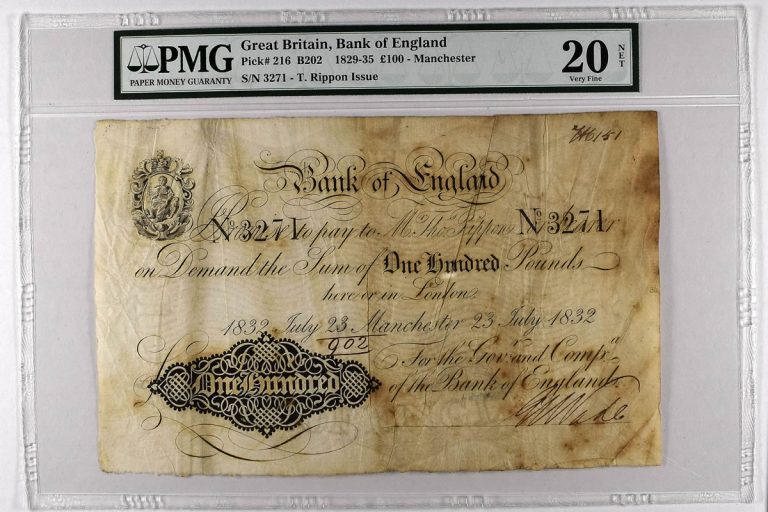 PMG
PAPER MONEY GUARANTY
Great Britain, Bank of England
Pick# 216 B202 1829-35 £100 - Manchester
S/N 3271 - T. Rippon Issue
20 NET
Very Fine
Bank of England
Nº 3271 to pay to Mr. Thos. Rippon Nº 3271
on Demand the Sum of One Hundred Pounds
here or in London.
1832 July 23 Manchester 23 July 1832
902
For the Govr. and Compa.
of the Bank of England.
£ One Hundred